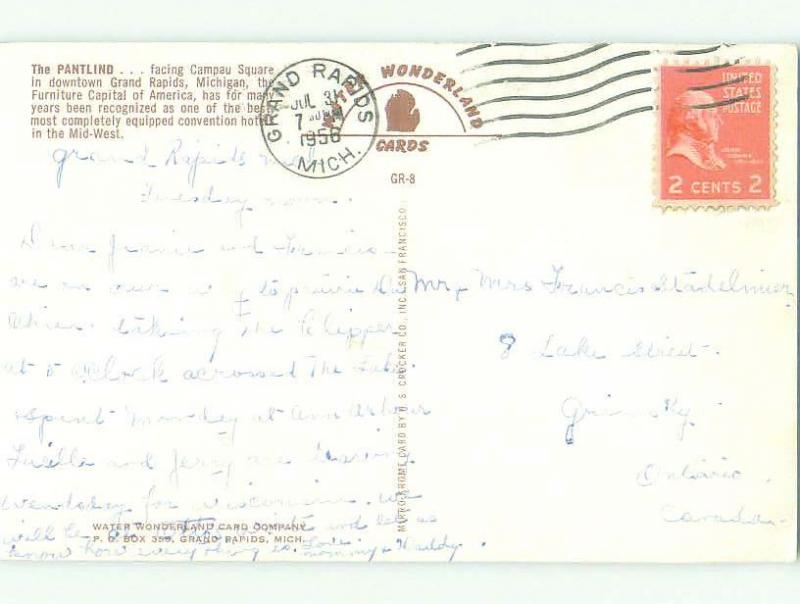 The PANTLIND . . . facing Campau Square
in downtown Grand Rapids, Michigan, the
Furniture Capital of America, has for many
years been recognized as one of the best
most completely equipped convention hotels
in the Mid-West.
WATER WONDERLAND
CARDS
GR-8
GRAND RAPIDS
JUL 31
7
1956
MICH.
UNITED
STATES
POSTAGE
2 CENTS 2
Grand Rapids Mich
Tuesday noon.
Dear and Francis
are on our way to prairie Du
Chien. taking the Clipper
at 5 O'Clock acrossed the Lake.
spent Monday at Ann Arbour
Luella and Jerry are leaving
wendesday for wisconsin. we
will be and let us
know how everything is. Love.
mommy & Daddy.
Mr & Mrs Francis Stadelmier
8 Lake Street.
Grimsby
Ontario.
Canada
WATER WONDERLAND CARD COMPANY
P. O. BOX 355, GRAND RAPIDS, MICH.
MIRRO-KROME CARD BY H. S. CROCKER CO., INC., SAN FRANCISCO